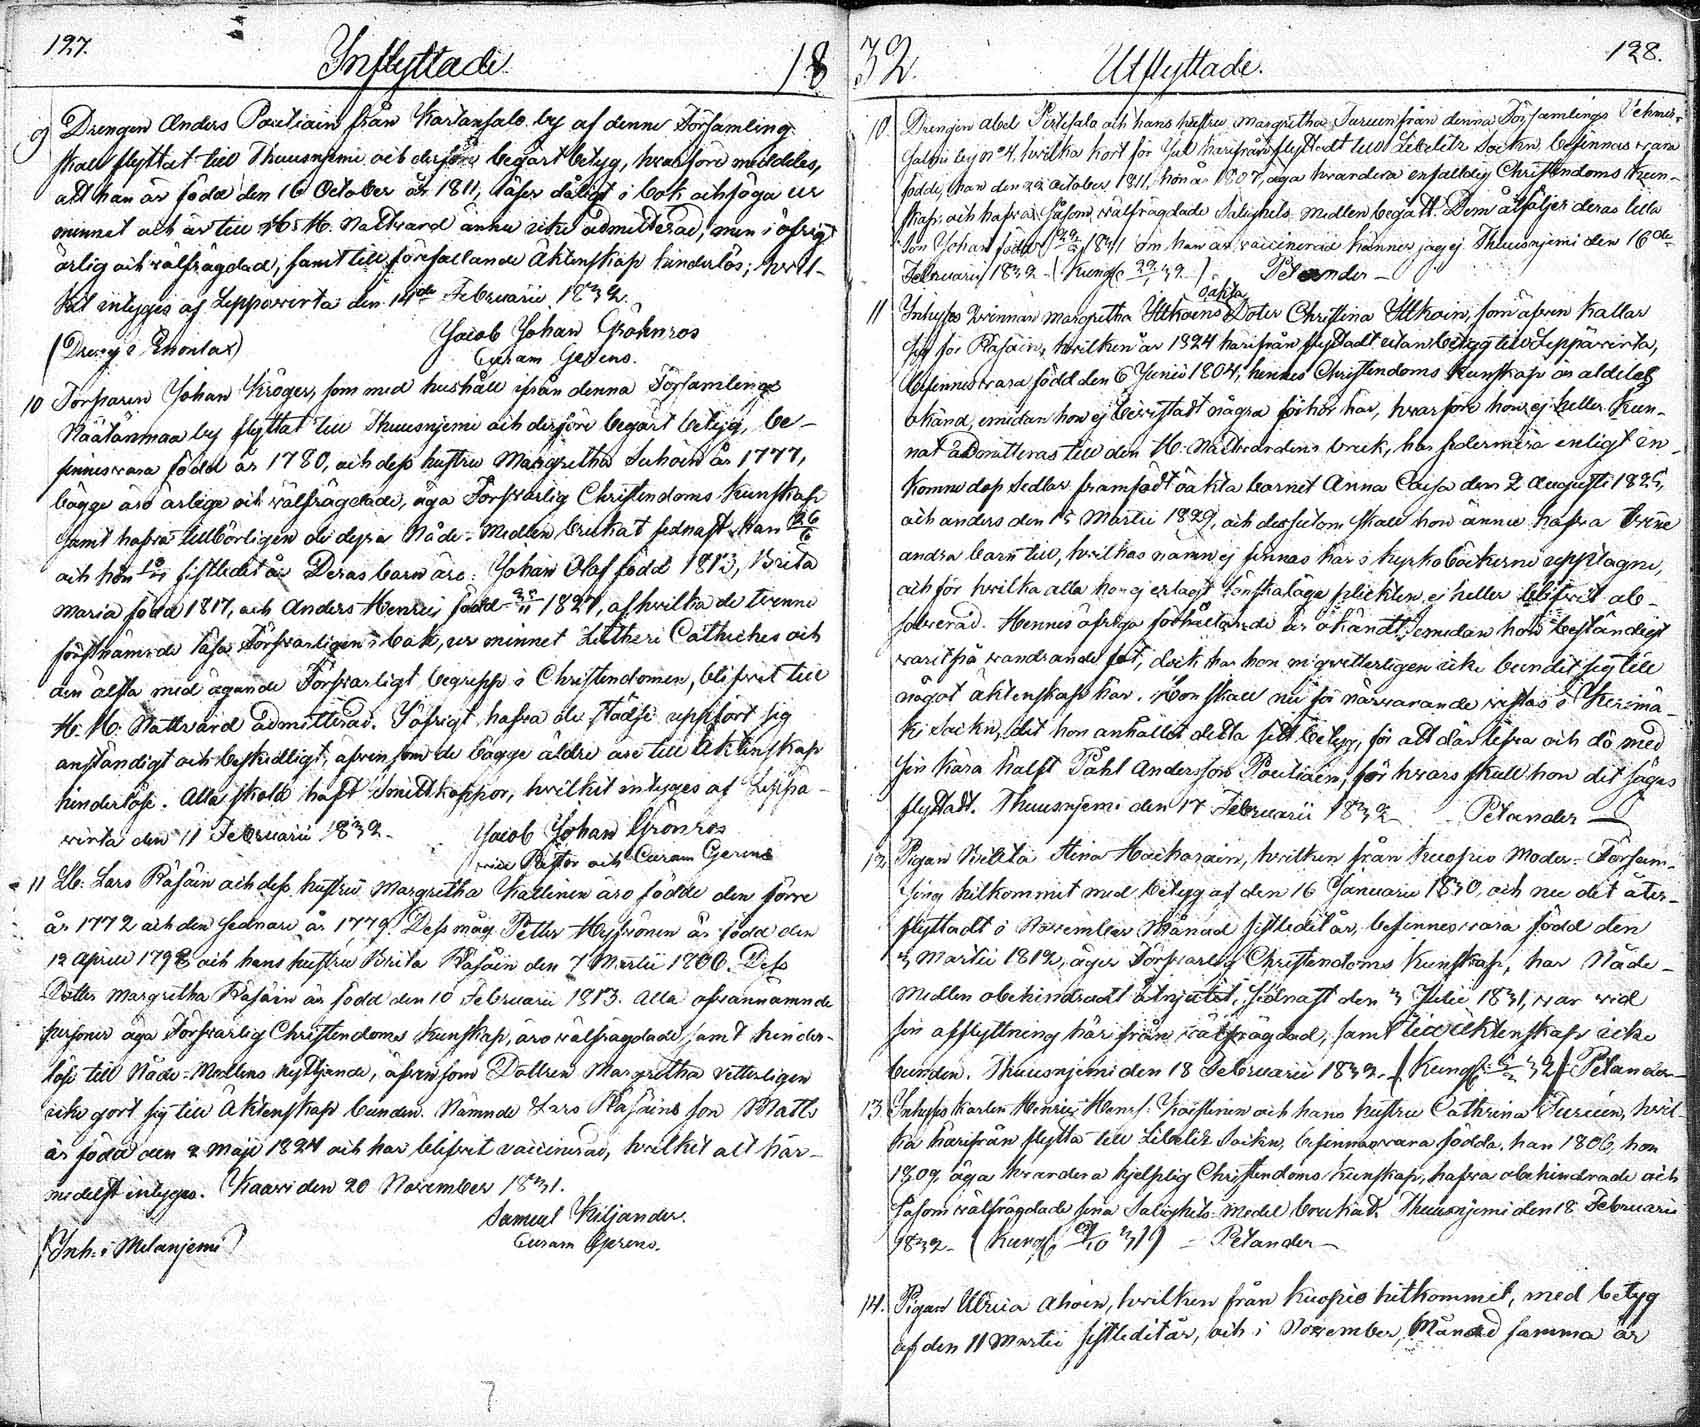 127.
Ynflyttade.
18
9 Drengen Anders Poutiain från Kartansalo by af denne Församling
skall flyttat till Thuusnjemi och derföre begärt betyg, hvarföre meddeles,
att han är född den 16 October år 1811, läser dåligt i bok och föga ur
minnet och är till H. H. Nattvard ännu icke admitterad, men i öfrigt
ärlig och välfrägdad, samt till förefallande Äktenskap hinderlös; hvil-
ket intygges af Leppävirta den 14de Februarii 1832.
(Dreng i Enonlax) Jacob Johan Grönroos
Curam Gerens.
10 Torparen Johan Kröger, som med hushåll ifrån denna Församlings
Näätänmaa by flyttat till Thuusnjemi och derföre begärt betyg, be-
finnes vara född år 1780, och dess hustru Margretha Suhoin år 1777,
bägge äro ärlige och välfrägdade, äga Försvarlig Christendoms Kunskap
samt hafva tillbörligen de dyra Nåde-Medlen brukat sednast han 26/6
och hon sistledit år. Deras barn äro: Johan Olof född 1813, Brita
Maria född 1817, och Anders Henric född 1827, af hvilka de tvenne
förstnämnde läsa Försvarligen i bok, ur minnet Lutheri Catheches och
den älsta med ägande Försvarligt begrepp i Christendomen, blifvit till
H. H. Nattvard admitterad. I öfrigt hafva de städse uppfört sig
anständigt och beskedligt, äfven som de bägge äldre äro till Äktenskap
hinderlöse. Alla skola haft Smittkoppor, hvilket intygges af Leppä-
virta den 11 Februarii 1832. Jacob Johan Grönroos
vice Pastor och Curam Gerens
11 Lb: Lars Räsäin och dess hustru Margretha Kallinen äro födde den förre
år 1772 och den sednare år 1779. Dess måg Petter Heyvönen är född den
12 Aprill 1798 och hans hustru Brita Räsäin den 7 Martii 1806. Dess
Dotter Margretha Räsäin är född den 10 Februarii 1813. Alla ofvannämnde
personer äga Försvarlig Christendoms Kunskap, äro välfrägdade, samt hinder-
löse till Nåde-Medlens nyttjande, äfven som Dottren Margretha vetterligen
icke gort sig till Äktenskap bunden. Nämnde Lars Räsäins son Matts
är född den 2 Maji 1824 och har blifvit vaccinerad, hvilket allt här-
medelst intyges. Kaavi den 20 November 1831.
Samuel Kiljander.
(Inh: i Melanjemi) Curam Gerens.
32.
Utflyttade.
128.
10 Drengen Abel Pirtesalo och hans hustru Margretha Turuin från denna Församlings Vehmer-
salmi by No 4, hvilka kort för Jul härifrån flyttadt till Libelitz Sockn, befinnas vara
födde, han den 22 October 1811, hon år 1807, äga hvardera enfaldig Christendoms Kun-
skap, och hafva såsom välfrägdade Salighets Medlen begått. Dem åtföljer deras lilla
son Johan född 1831 om han är vaccinerad känner jag ej. Thuusnjemi den 16de
Februarii 1832 - (Kungs. ) Pelander -
11 Inhyses Qvinnan Margretha Ylikoins oäkta Doter Christina Ylikoin, som äfven kallar
sig för Räsäin, hvilken år 1824 härifrån flyttadt utan betyg till Leppävirta,
befinnes vara född den 6 Junii 1804, hennes Christendoms Kunskap är aldeles
okänd, emedan hon ej bevistadt några förhör här, hvarföre hon ej heller kun-
nat admitteras till den H. Nattvardens bruk, har sedermera enligt in-
komne dop Sedlar framfödt oäkta barnet Anna Caisa den 2 Augusti 1825,
och Anders den 15 Martii 1829, och dessutom skall hon ännu hafva tvenne
andra barn till, hvilkas namn ej finnas här i kyrkoböckerne upptagne,
och för hvilka alla hon ej erlagt Lönskaläge plickten, ej heller blifvit ab-
solverad. Hennes öfriga förhållande är okändt, emedan hon beständigt
varit på vandrande fot, dock har hon mig vitterligen icke bundit sig till
något äktenskap här. Hon skall nu för närvarande vistas i Kerimä-
ki Sockn, dit hon anhållit detta sitt betyg, för att där lefva och dö med
sin kära hälft Påhl Andersson Poutiain, för hvars skull hon dit säges
flyttadt. Thuusnjemi den 17 Februarii 1832 - Pelander -
12 Pigan Stina Hackarain, hvilken från Kuopio Moder-Försam-
ling hitkommit med betyg af den 16 Januarii 1830, och nu dit åter-
flyttadt i November Månad sistledit år, befinnes vara född den
3 Martii 1812, äger Försvarlig Christendoms Kunskap, har Nåde-
Medlen obehindradt åtnjutit, sednast den 3 Julii 1831, var vid
sin afflyttning härifrån välfrägdad, samt till äktenskap icke
bunden. Thuusnjemi den 18 Februarii 1832. (Kungs. 32) Pelander
13 Inhyses Karlen Henric Henrs: Koistinen och hans hustru Cathrina Turuin, hvil-
ka härifrån flytta till Libelitz Sockn, befinnas vara födda, han 1806, hon
1809, äga hvardera hjelplig Christendoms Kunskap, hafva obehindrade och
såsom välfrägdade sina Salighets-Medel brukat. Thuusnjemi den 18 Februarii
1832 - (Kungs. 31) - Pelander -
14. Pigan Ulrica Ahoin, hvilken från Kuopio hitkommit, med betyg
af den 11 Martii sistledit år, och i November Månad samma år